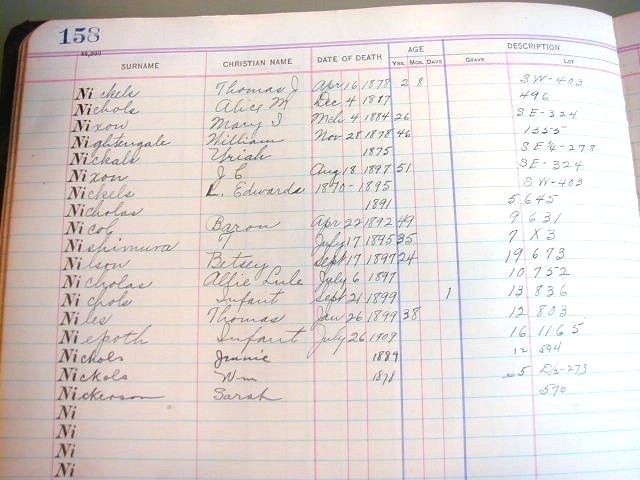 158
45,980
SURNAME CHRISTIAN NAME DATE OF DEATH AGE DESCRIPTION
YRS. MOS. DAYS GRAVE LOT
Nickels Thomas J Apr 16 1878 2 8 SW-403
Nichols Alice M Dec 4 1887 496
Nixon Mary I Mch 4 1884 26 SE-324
Nightengale William Nov 28 1878 46 1355
Nickals Uriah 1875 SE¼-278
Nixon J C Aug 18 1897 51 SE-324
Nickels L. Edwards 1870-1895 SW-403
Nicholas 1891 5 645
Nicol Baron Apr 22 1892 49 9 631
Nishimura Y July 17 1895 35 7 X3
Nilson Betsey Sept 17 1897 24 19 673
Nicholas Alfie Lule July 6 1897 10 752
Nichols Infant Sept 21 1899 1 13 836
Niles Thomas Jan 26 1899 38 12 803
Niepoth Infant July 26 1909 16 1165
Nichols Jennie 1889 12 594
Nickols Wm 1878 5 E/2-273
Nickerson Sarah 570
Ni
Ni
Ni
Ni